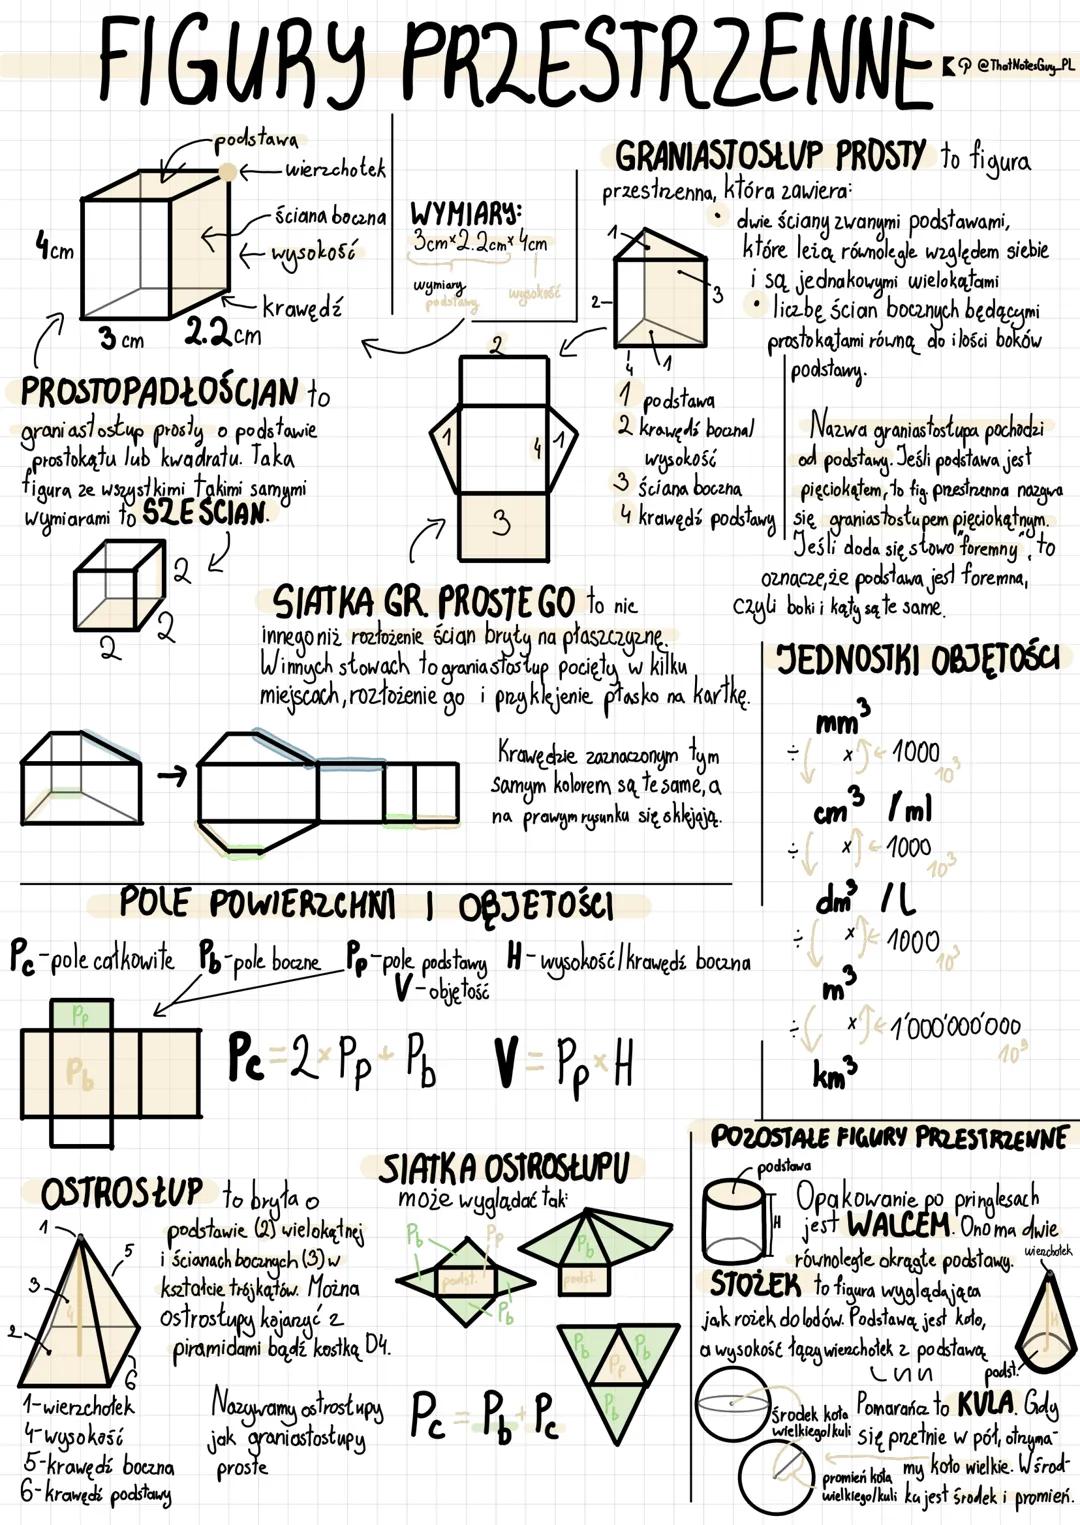 FIGURY PRZESTRZENNE
@ThatNotesGuy_PL
podstawa
wierzchołek
ściana boczna
wysokość
krawędź
4cm
3 cm
2.2cm
WYMIARY:
3cm×2.2cm×4cm
wymiary
podstawy
wysokość
GRANIASTOSŁUP PROSTY to figura
przestrzenna, która zawiera:
• dwie ściany zwanymi podstawami,
które leżą równolegle względem siebie
i są jednakowymi wielokątami
• liczbę ścian bocznych będącymi
prostokątami równą do ilości boków
podstawy.
1
2
3
4
1
1 podstawa
2 krawędź boczna/
wysokość
3 ściana boczna
4 krawędź podstawy
Nazwa graniastosłupa pochodzi
od podstawy. Jeśli podstawa jest
pięciokątem, to fig. przestrzenna nazywa
się graniastosłupem pięciokątnym.
Jeśli doda się słowo "foremny", to
oznacze, że podstawa jest foremna,
czyli boki i kąty są te same.
PROSTOPADŁOŚCIAN to
graniastosłup prosty o podstawie
prostokątu lub kwadratu. Taka
figura ze wszystkimi takimi samymi
wymiarami to SZEŚCIAN.
2
2
2
2
1
4
1
3
SIATKA GR. PROSTEGO to nic
innego niż rozłożenie ścian bryły na płaszczyznę.
W innych słowach to graniastosłup pocięty w kilku
miejscach, rozłożenie go i przyklejenie płasko na kartkę.
Krawędzie zaznaczonym tym
samym kolorem są te same, a
na prawym rysunku się sklejają.
JEDNOSTKI OBJĘTOŚCI
mm³
÷ × 1000
10³
cm³ / ml
÷ × 1000
10³
dm³ / L
÷ × 1000
10³
m³
÷ × 1'000'000'000
10⁹
km³
POLE POWIERZCHNI I OBJĘTOŚCI
Pc-pole całkowite Pb-pole boczne Pp-pole podstawy H-wysokość/krawędź boczna
V-objętość
Pp
Pb
Pc = 2 × Pp + Pb V = Pp × H
OSTROSŁUP to bryła o
podstawie (2) wielokątnej
i ścianach bocznych (3) w
kształcie trójkątów. Można
ostrosłupy kojarzyć z
piramidami bądź kostką D4.
1
5
3
4
2
6
1-wierzchołek
4-wysokość
5-krawędź boczna
6-krawędź podstawy
Nazywamy ostrosłupy
jak graniastosłupy
proste
SIATKA OSTROSŁUPU
może wyglądać tak:
Pb
Pp
podst.
Pb
Pb
podst.
Pb
Pb
Pp
Pb
Pc = Pb + Pc
POZOSTAŁE FIGURY PRZESTRZENNE
podstawa
H
Opakowanie po pringlesach
jest WALCEM. Ono ma dwie
równoległe okrągłe podstawy.
wierzchołek
STOŻEK to figura wyglądająca
jak rożek do lodów. Podstawą jest koło,
a wysokość łączy wierzchołek z podstawą
H
podst.
Pomarańcz to KULA. Gdy
się przetnie w pół, otrzyma-
my koło wielkie. W środ-
ku jest środek i promień.
środek koła
wielkiego/kuli
promień koła
wielkiego/kuli